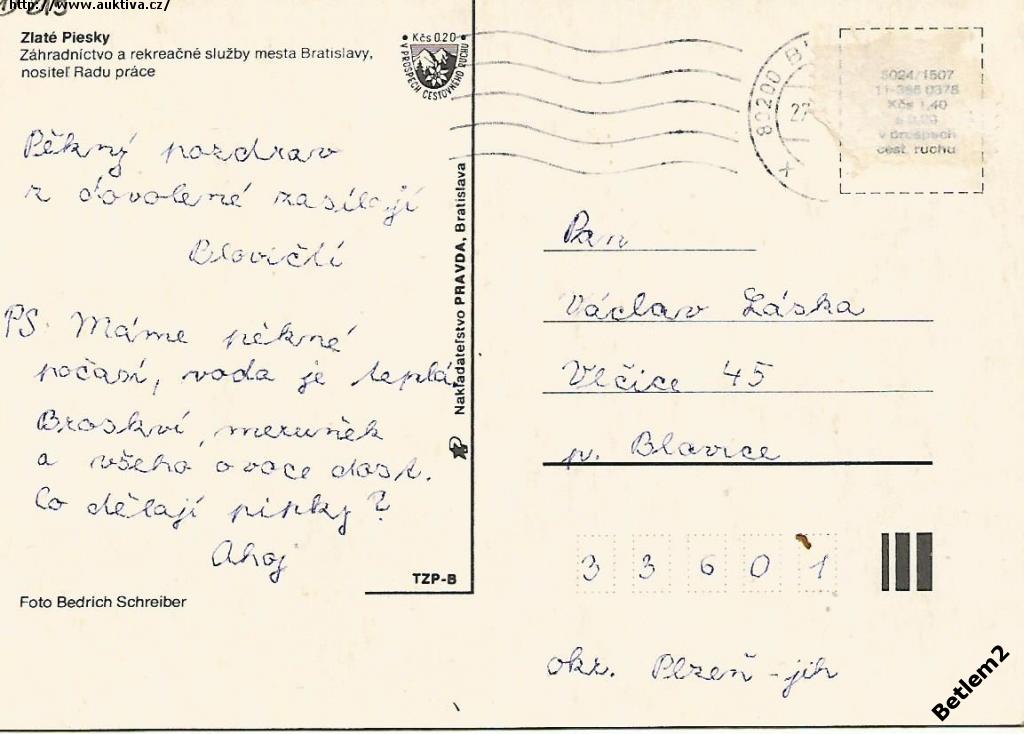 http://www.auktiva.cz/
Zlaté Piesky
Záhradníctvo a rekreačné služby mesta Bratislavy,
nositeľ Radu práce
Kčs 0.20
V PROSPECH CESTOVNÉHO RUCHU
Pěkný pozdrav
z dovolené zasílají
Blovičtí
PS. Máme pěkné
počasí, voda je teplá,
Broskví, meruněk
a všeho ovoce dost.
Co dělají pipky?
Ahoj
Foto Bedrich Schreiber
Nakladateľstvo PRAVDA, Bratislava
TZP-B
80200 B
27
5024/1507
11-386 0378
Kčs 1,40
v prospech
cest. ruchu
Pan
Václav Láska
Vlčice 45
p. Blovice
33601
okr. Plzeň-jih
Betlem2